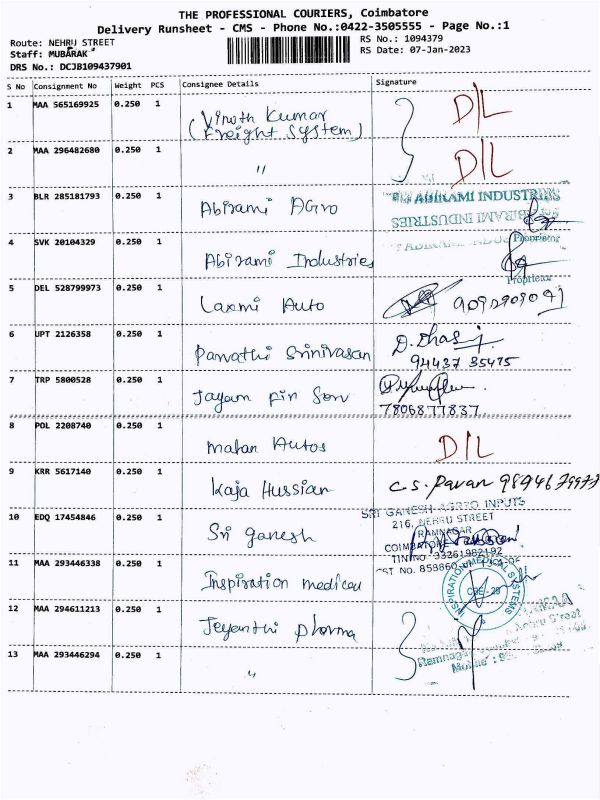 THE PROFESSIONAL COURIERS, Coimbatore
Delivery Runsheet - CMS - Phone No.:0422-3505555 - Page No.:1
Route: NEHRU STREET
RS No.: 1094379
Staff: MUBARAK
RS Date: 07-Jan-2023
DRS No.: DCJB109437901
S No Consignment No Weight PCS Consignee Details Signature
1 MAA 565169925 0.250 1 Vinoth Kumar D/L
(Freight System)
2 MAA 296482680 0.250 1 " D/L
3 BLR 285181793 0.250 1 Abirami Agro ABIRAMI INDUSTRIES
ABIRAMI INDUSTRIES
Proprietor
4 SVK 20104329 0.250 1 Abirami Industries
Proprietor
5 DEL 528799973 0.250 1 Laxmi Auto
6 UPT 2126358 0.250 1 Parvathi Srinivasan D. Dhasj
94437 35475
7 TRP 5800528 0.250 1 Jayam Pin Serv
7806877837
8 POL 2208740 0.250 1 Matan Autos D/L
9 KRR 5617140 0.250 1 Kaja Hussian C.S. Pavan
10 EDQ 17454846 0.250 1 Sri ganesh SRI GANESH AGRO INPUTS
216, NEHRU STREET
RAMNAGAR
COIMBATORE
TIN NO 33261982192
CST NO. 858860
11 MAA 293446338 0.250 1 Inspiration medical INSPIRATION MEDICAL SYSTEMS
CBE - 29
12 MAA 294611213 0.250 1 Jeyanthi pharma
Nehru Street
Ramnagar
Mobile :
13 MAA 293446294 0.250 1 "